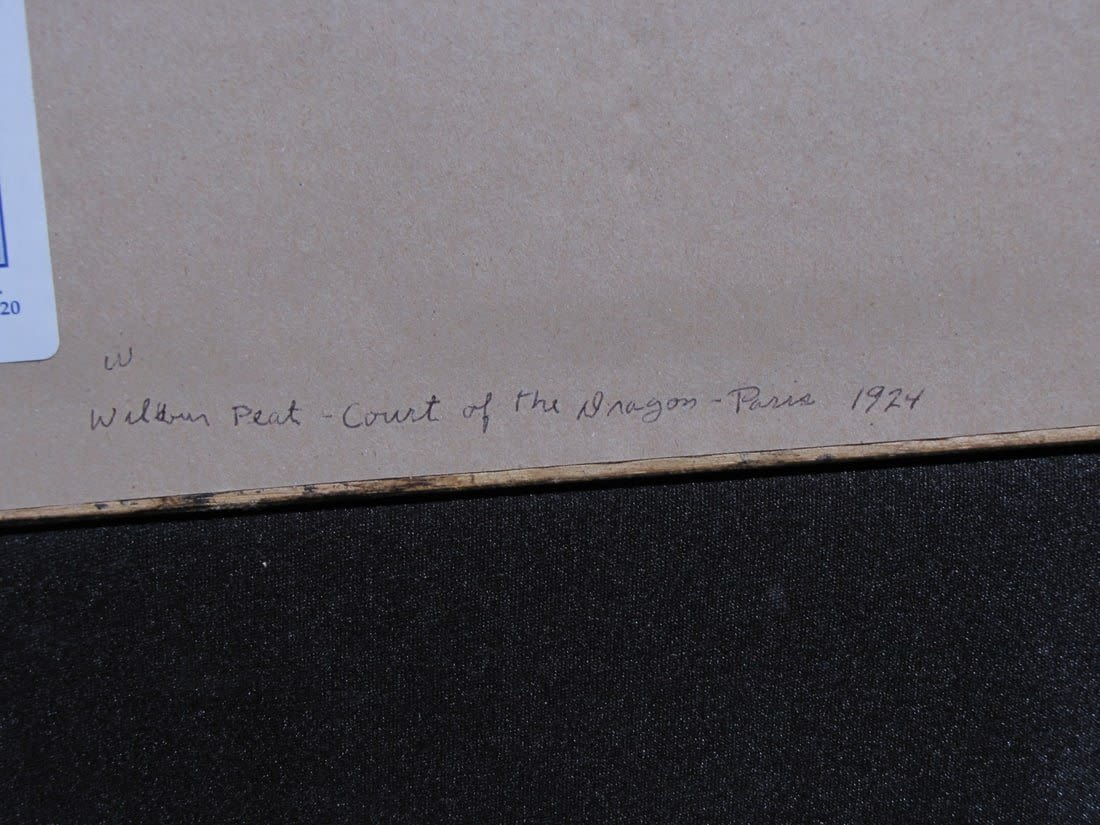 20
W
Wilbur Peat - Court of the Dragon - Paris 1924